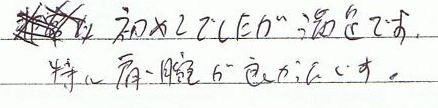 初めてでしたが満足です。
特に肩・腰が良かったです。